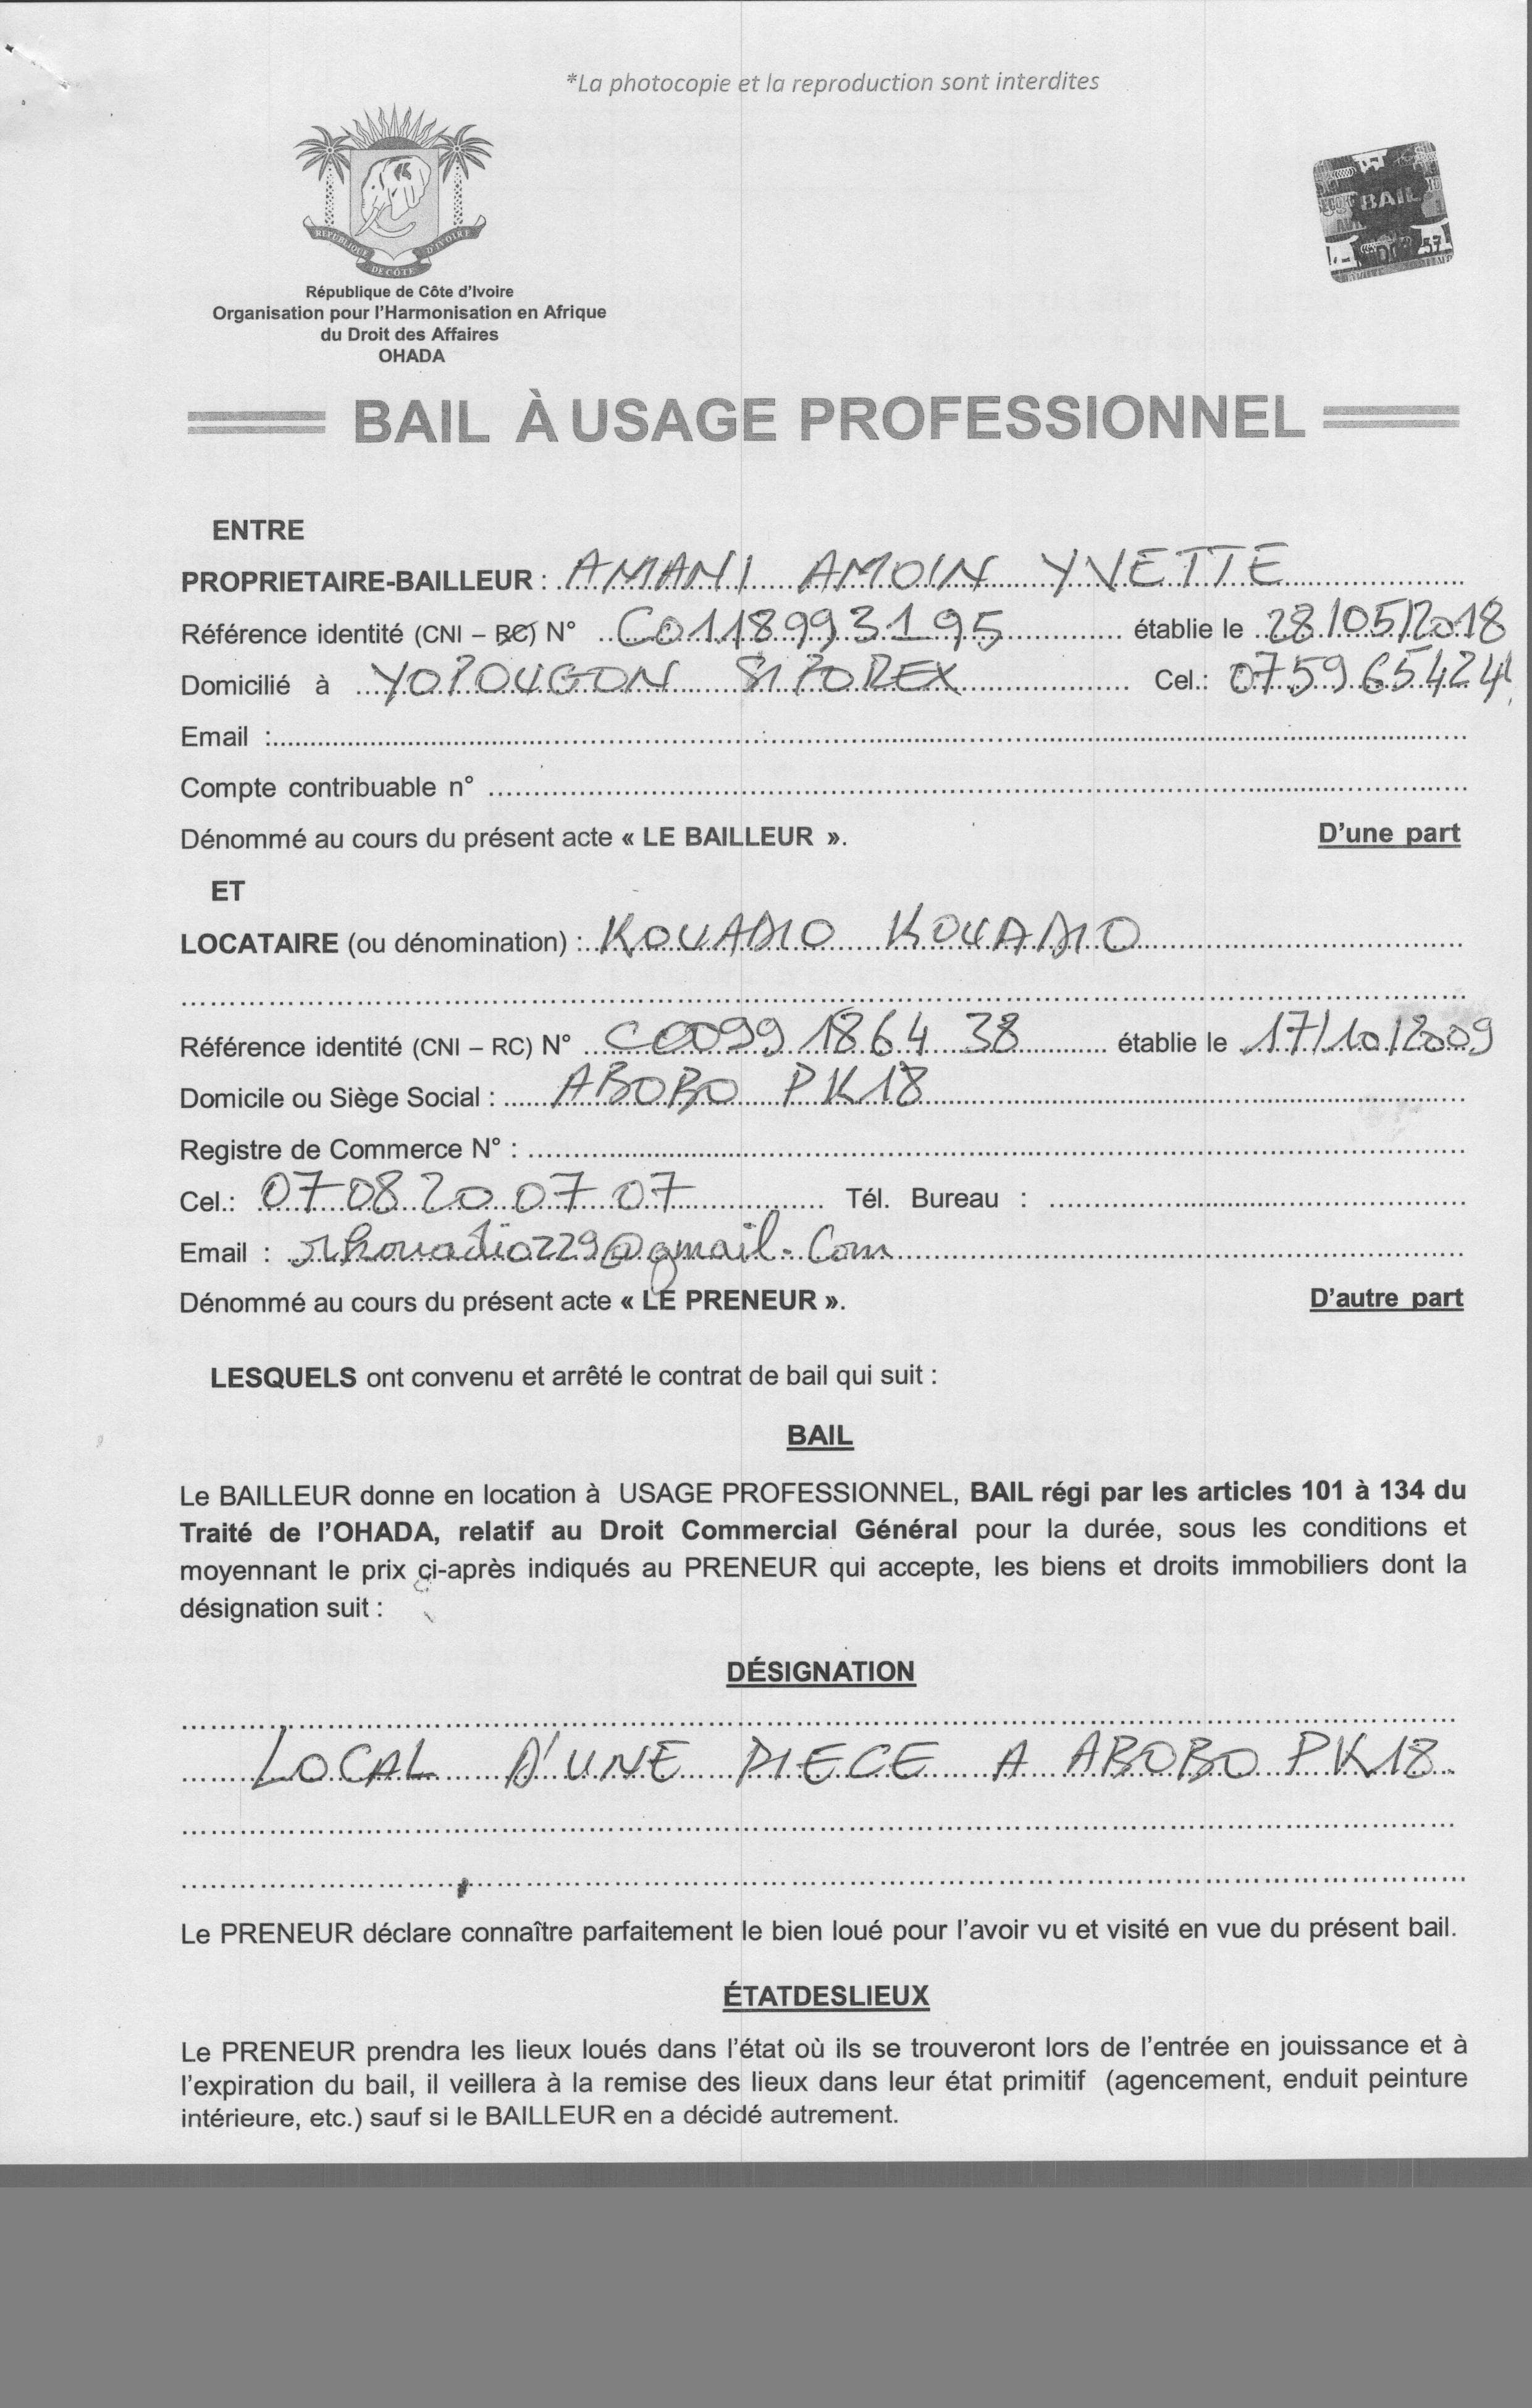 *La photocopie et la reproduction sont interdites
REPUBLIQUE DE CÔTE D'IVOIRE
BAIL
République de Côte d'Ivoire
Organisation pour l'Harmonisation en Afrique
du Droit des Affaires
OHADA
BAIL À USAGE PROFESSIONNEL
ENTRE
PROPRIETAIRE-BAILLEUR : AMANI AMOIN YVETTE
Référence identité (CNI – RC) N° C0118993195 établie le 28/05/2018
Domicilié à YOPOUGON SIPOREX Cel.: 0759654244
Email :
Compte contribuable n°
Dénommé au cours du présent acte « LE BAILLEUR ». D'une part
ET
LOCATAIRE (ou dénomination) : KOUADIO KOUADIO
Référence identité (CNI – RC) N° C0099 1864 38 établie le 17/10/2009
Domicile ou Siège Social : ABOBO PK18
Registre de Commerce N° :
Cel.: 07 08 20 07 07 Tél. Bureau :
Email :
Dénommé au cours du présent acte « LE PRENEUR ». D'autre part
LESQUELS ont convenu et arrêté le contrat de bail qui suit :
BAIL
Le BAILLEUR donne en location à USAGE PROFESSIONNEL, BAIL régi par les articles 101 à 134 du
Traité de l'OHADA, relatif au Droit Commercial Général pour la durée, sous les conditions et
moyennant le prix ci-après indiqués au PRENEUR qui accepte, les biens et droits immobiliers dont la
désignation suit :
DÉSIGNATION
LOCAL D'UNE PIECE A ABOBO PK18
Le PRENEUR déclare connaître parfaitement le bien loué pour l'avoir vu et visité en vue du présent bail.
ÉTATDESLIEUX
Le PRENEUR prendra les lieux loués dans l'état où ils se trouveront lors de l'entrée en jouissance et à
l'expiration du bail, il veillera à la remise des lieux dans leur état primitif (agencement, enduit peinture
intérieure, etc.) sauf si le BAILLEUR en a décidé autrement.